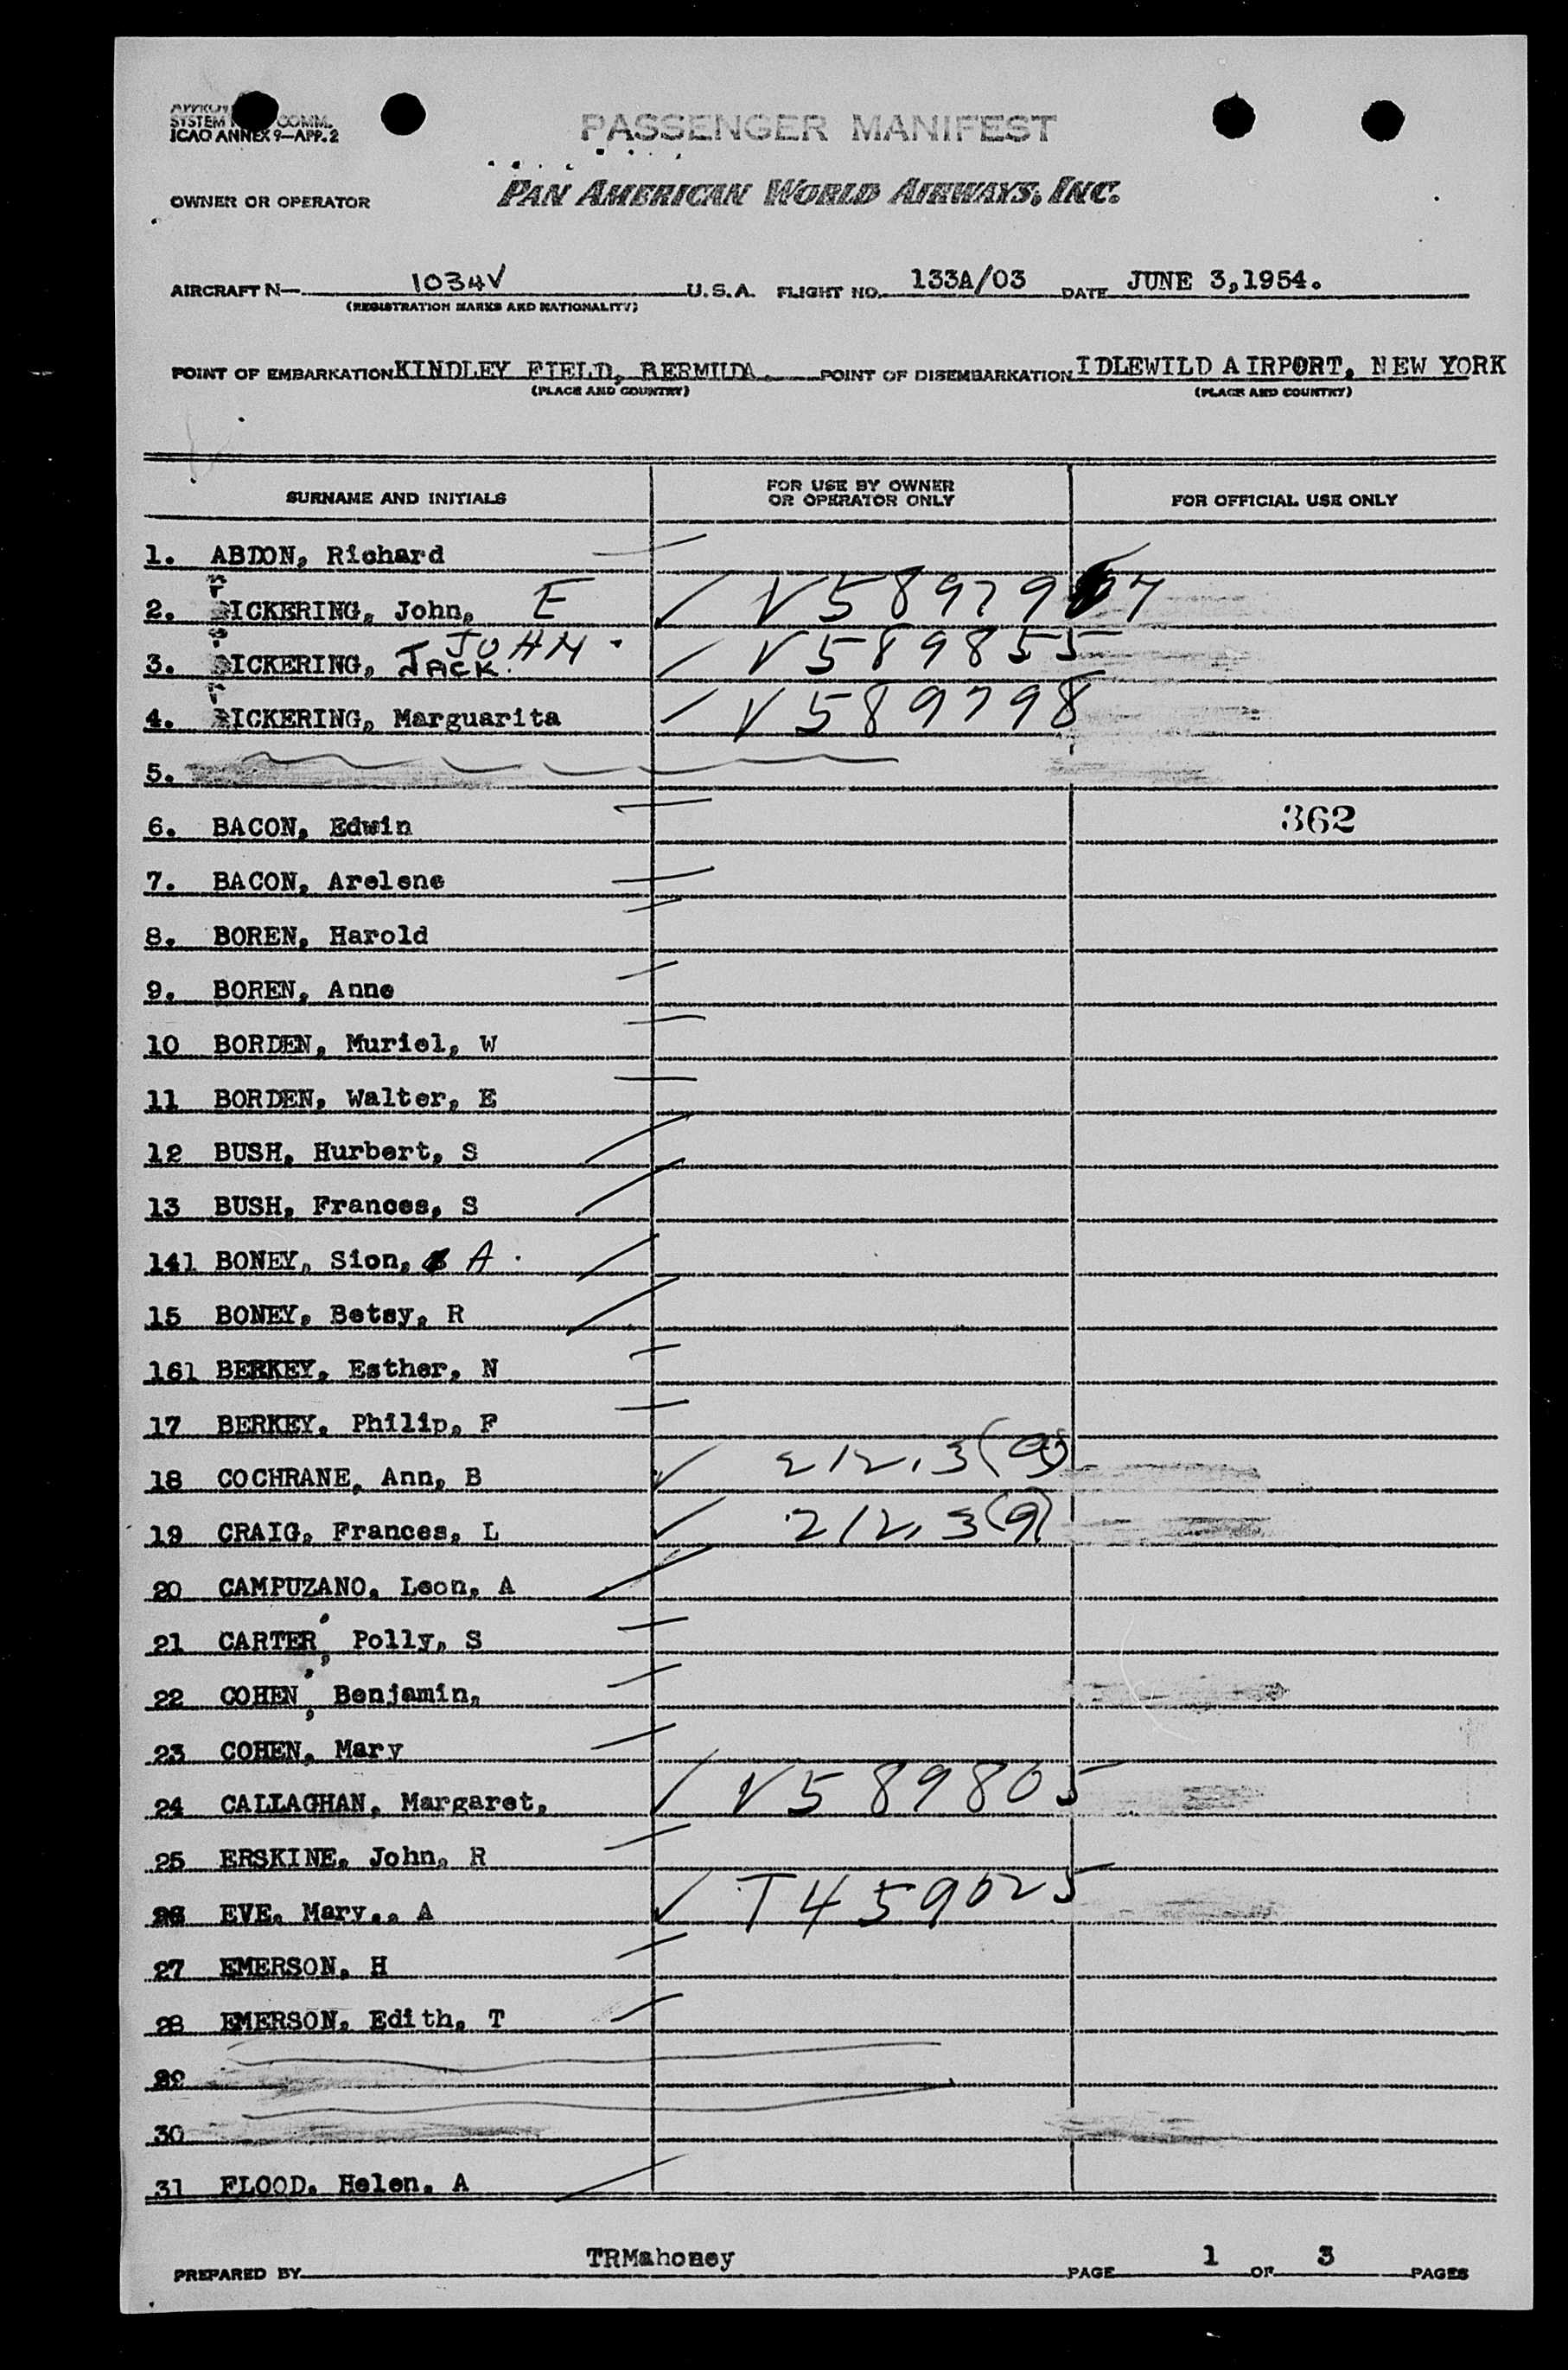 SYSTEM COMM.
ICAO ANNEX 9—APP. 2
PASSENGER MANIFEST
OWNER OR OPERATOR PAN AMERICAN WORLD AIRWAYS, INC.
AIRCRAFT N— 1034V U.S.A. FLIGHT NO. 133A/03 DATE JUNE 3,1954.
(REGISTRATION MARKS AND NATIONALITY)
POINT OF EMBARKATION KINDLEY FIELD, BERMUDA. POINT OF DISEMBARKATION IDLEWILD AIRPORT, NEW YORK
(PLACE AND COUNTRY) (PLACE AND COUNTRY)
SURNAME AND INITIALS FOR USE BY OWNER OR OPERATOR ONLY FOR OFFICIAL USE ONLY
1. ABDON, Richard
2. PICKERING, John, E V589797
3. PICKERING, JACK. JOHN. V589855
4. PICKERING, Marguarita V589798
5.
6. BACON, Edwin 362
7. BACON, Arelene
8. BOREN, Harold
9. BOREN, Anne
10 BORDEN, Muriel, W
11 BORDEN, Walter, E
12 BUSH, Hurbert, S
13 BUSH, Frances, S
141 BONEY, Sion, A.
15 BONEY, Betsy, R
161 BERKEY, Esther, N
17 BERKEY, Philip, F
18 COCHRANE, Ann, B 212.3(9)
19 CRAIG, Frances, L 212.3(9)
20 CAMPUZANO, Leon, A
21 CARTER, Polly, S
22 COHEN, Benjamin,
23 COHEN, Mary
24 CALLAGHAN, Margaret, V589805
25 ERSKINE, John, R
26 EVE, Mary,, A T459025
27 EMERSON, H
28 EMERSON, Edith, T
29
30
31 FLOOD, Helen. A
PREPARED BY TRMahoney PAGE 1 OF 3 PAGES